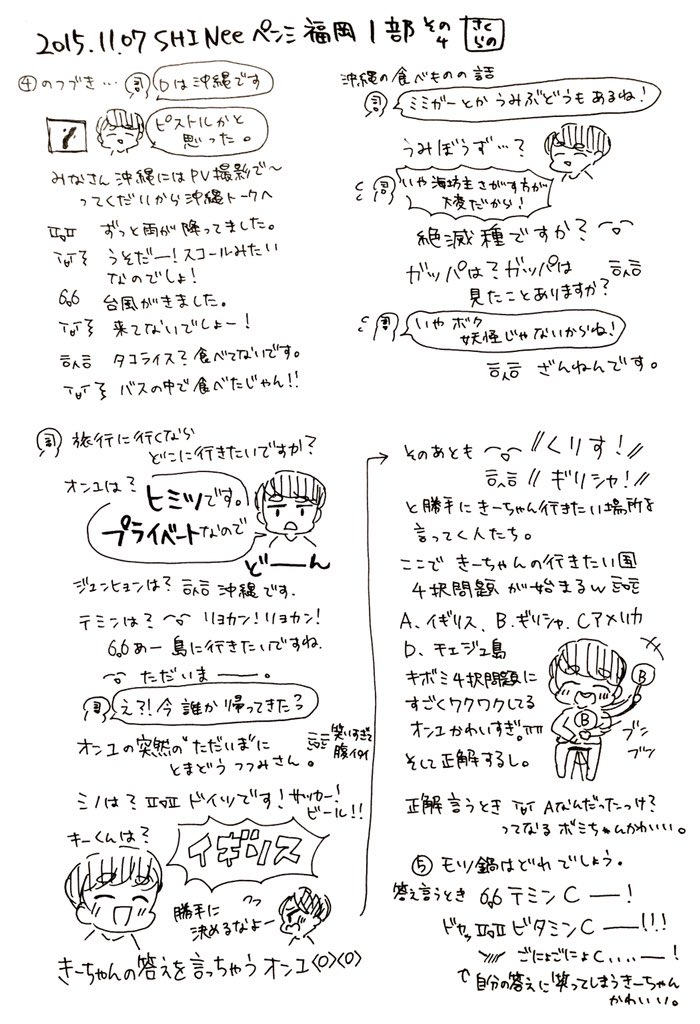 2015.11.07 SHINee ペンミ 福岡 1部 その4 きくらの
④のつづき… 司 Dは沖縄です
ピストルかと
思った。
みなさん沖縄にはPV撮影で〜
ってくだいから沖縄トークへ
ずっと雨が降ってました。
うそだー!スコールみたい
なのでしょ!
台風がきました。
来てないでしょー!
タコライス?食べてないです。
バスの中で食べたじゃん!!
沖縄の食べものの話
司 ミミガーとかうみぶどうもあるね!
うみぼうず…?
司 いや海坊主さがす方が
大変だから!
絶滅種ですか?
ガッパは?ガッパは
見たことありますか?
司 いやボク
妖怪じゃないからね!
ざんねんです。
司 旅行に行くなら
どこに行きたいですか?
オンユは?
ヒミツです。
プライベートなので
どーーん
ジョンヒョンは? 沖縄です.
テミンは? リョカン!リョカン!
あー島に行きたいですね.
ただいまー。
司 え?!今誰か帰ってきた?
オンユの突然の"ただいま"に
とまどうつつみさん。
笑いすぎて
腹イタイ
ミノは? ドイツです!サッカー!
ビール!!
キーくんは?
イギリス
勝手に
決めるなよー
きーちゃんの答えを言っちゃうオンユ
そのあとも 〃くりす!〃
〃ギリシャ!〃
と勝手にきーちゃん行きたい場所を
言ってく人たち。
ここで きーちゃんの行きたい国
4択問題が始まるw
A、イギリス、B.ギリシャ.Cアメリカ
D、チェジュ島
キボミ4択問題に
すごくワクワクしてる
オンユかわいすぎ。
そして正解するし。
B
B
ブン
ブン
正解言うとき Aなんだったっけ?
ってなるボミちゃんかわいい。
⑤ モツ鍋はどれでしょう。
答え言うとき テミンCー!
ドヤッ ビタミンCー!!!
ごにょごにょC....ー!
自分の答えに笑ってしまうきーちゃん
かわいい。